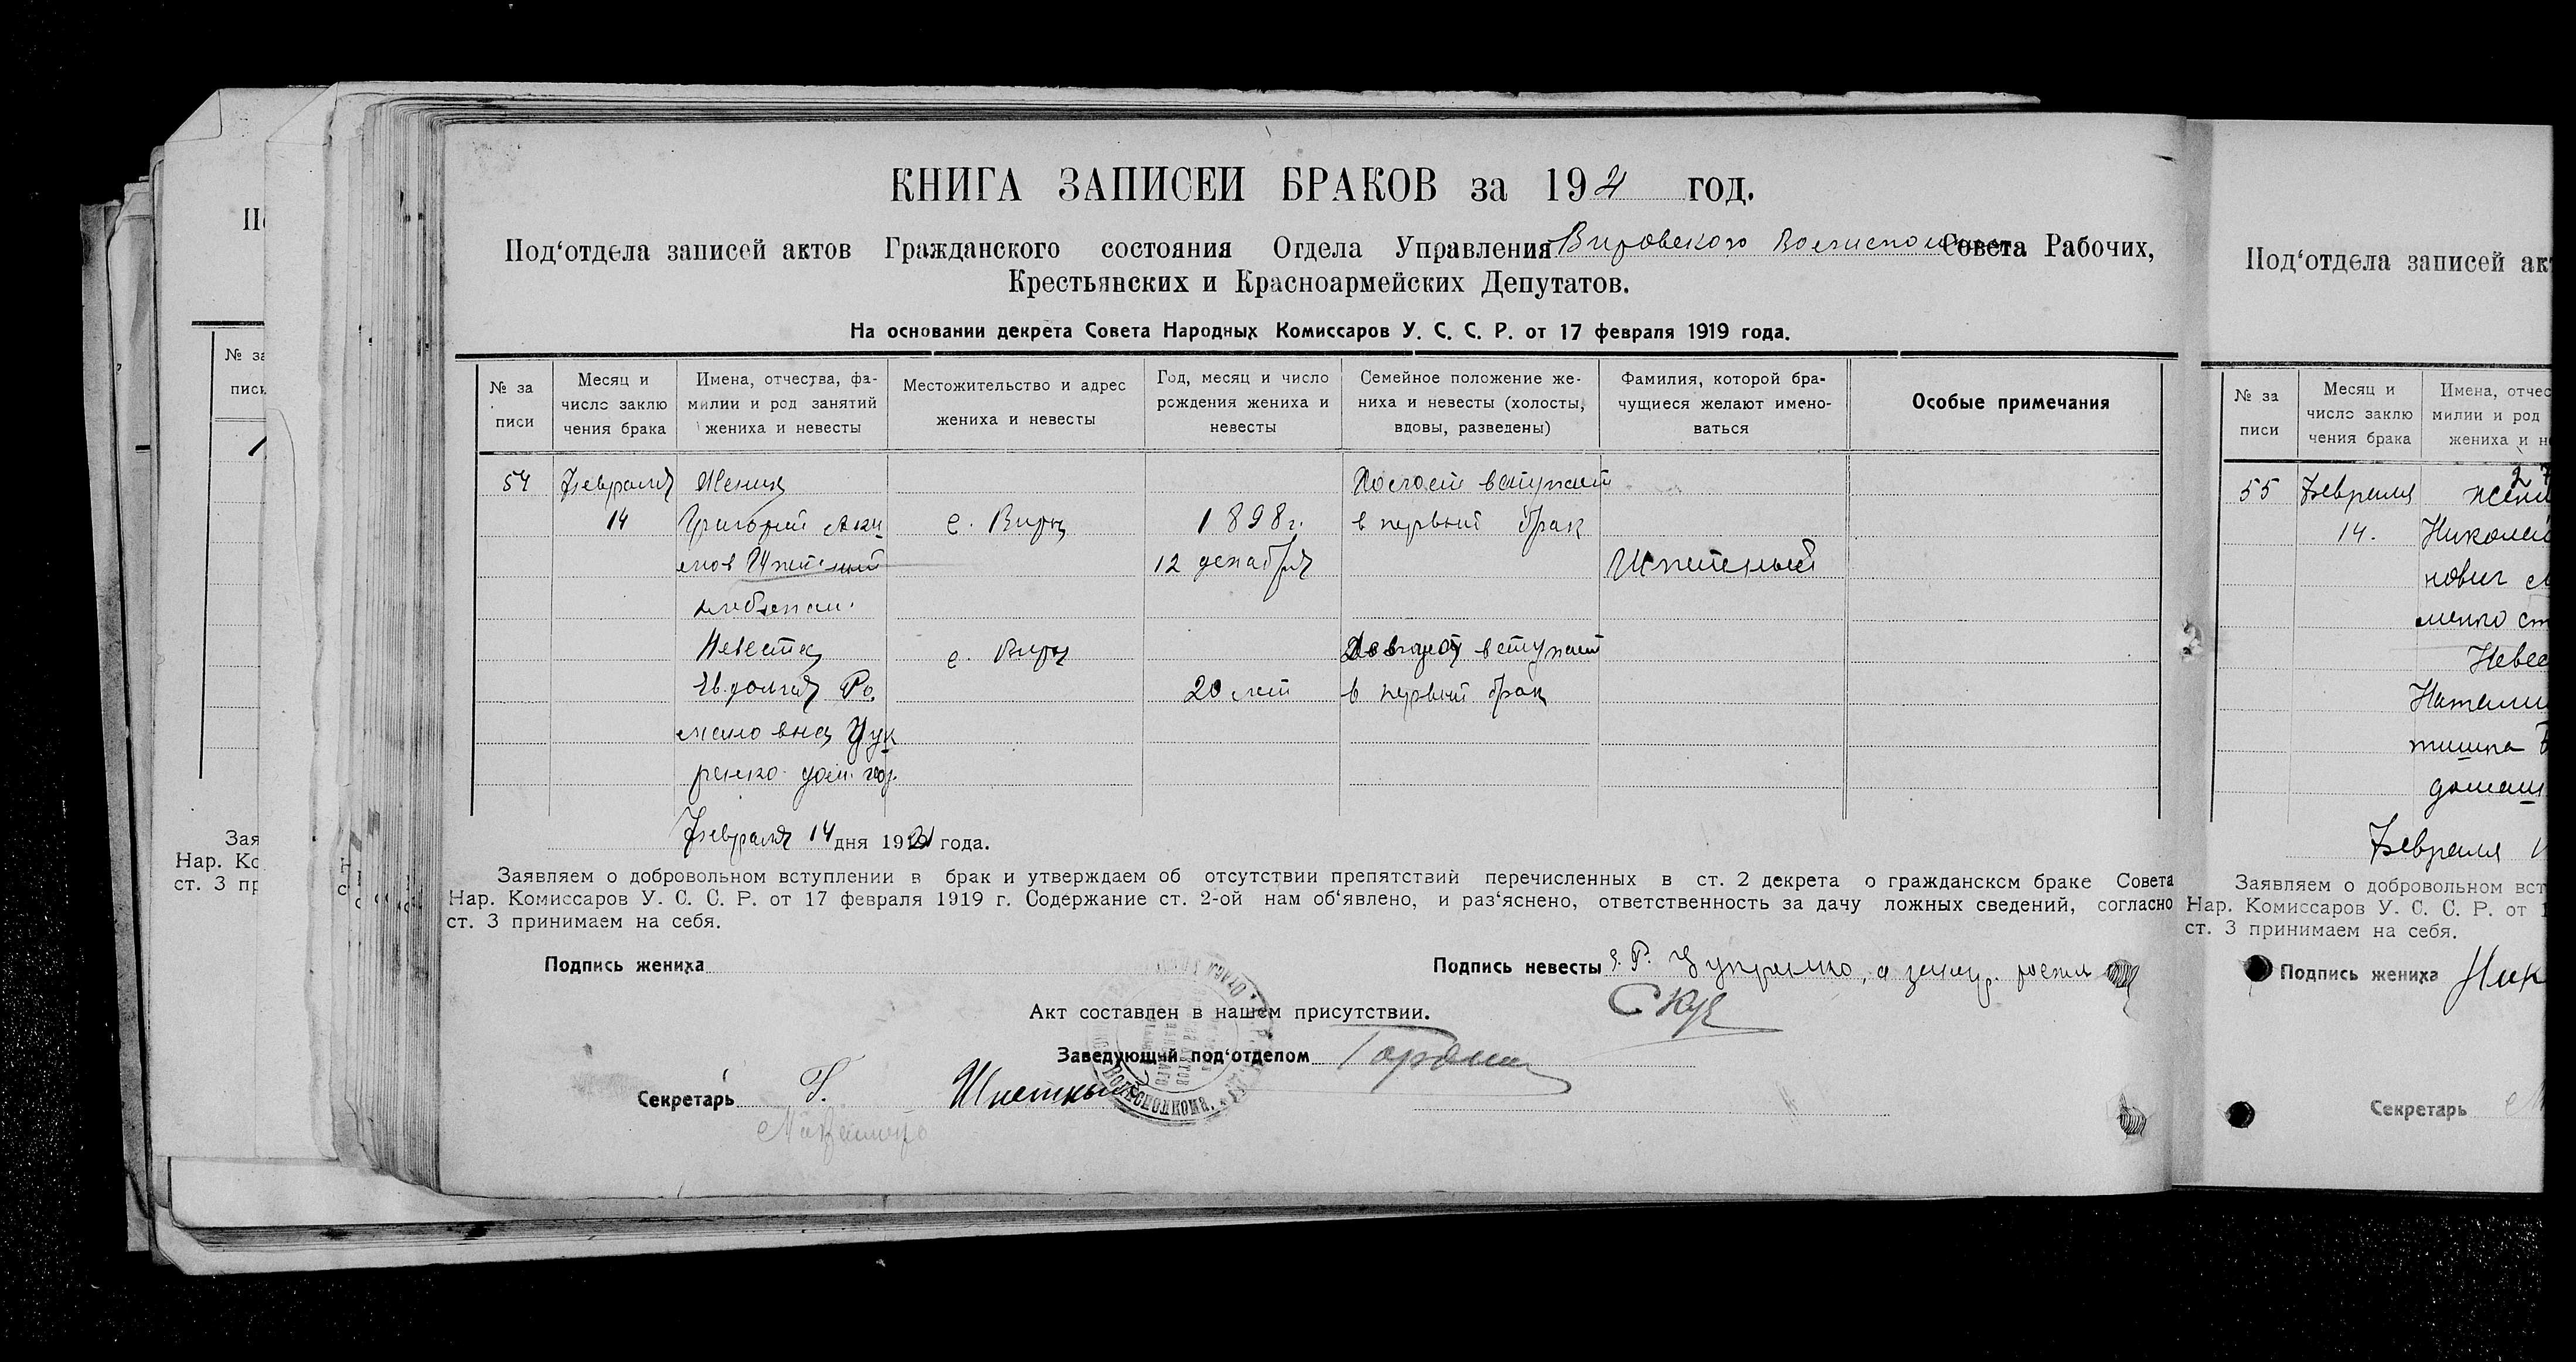 КНИГА ЗАПИСЕЙ БРАКОВ за 1921 год.
Под‘отдела записей актов Гражданского состояния Отдела Управления Вировского Волисполкома Совета Рабочих,
Крестьянских и Красноармейских Депутатов.
На основании декрета Совета Народных Комиссаров У. С. С. Р. от 17 февраля 1919 года.
№ за
писи
Месяц и
число заклю
чения брака
Имена, отчества, фа-
милии и род занятий
жениха и невесты
Местожительство и адрес
жениха и невесты
Год, месяц и число
рождения жениха и
невесты
Семейное положение же-
ниха и невесты (холосты,
вдовы, разведены)
Фамилия, которой бра-
чущиеся желают имено-
ваться
Особые примечания
54 Февраля Жених Холост вступает
14 Григорий Аки- с. Виры 1898 г. в первый брак
мов Шпетный 12 декабря Шпетный
хлебопаш.
Невеста с. Виры вступает
Евдокия Ро- 20 лет в первый брак
мановна Цук
ренко дом. хоз.
Февраля 14 дня 1921 года.
Заявляем о добровольном вступлении в брак и утверждаем об отсутствии препятствий перечисленных в ст. 2 декрета о гражданском браке Совета
Нар. Комиссаров У. С. С. Р. от 17 февраля 1919 г. Содержание ст. 2-ой нам об‘явлено, и раз‘яснено, ответственность за дачу ложных сведений, согласно
ст. 3 принимаем на себя.
Подпись жениха
Подпись невесты Е. Р.
Акт составлен в нашем присутствии.
Заведующий под‘отделом
Секретарь Г. Шпетный
Под‘отдела записей ак
№ за
писи
Месяц и
число заклю
чения брака
Имена, отчес
милии и род
жениха и н
55 Февраля жени
14. Николай
нович
менко
Невес
Натали
домаш
Февраля 1
Заявляем о добровольном вст
Нар. Комиссаров У. С. С. Р. от 1
ст. 3 принимаем на себя.
Подпись жениха Ник
Секретарь
№ за
писи
Зая
Нар. Ко
ст. 3 пр